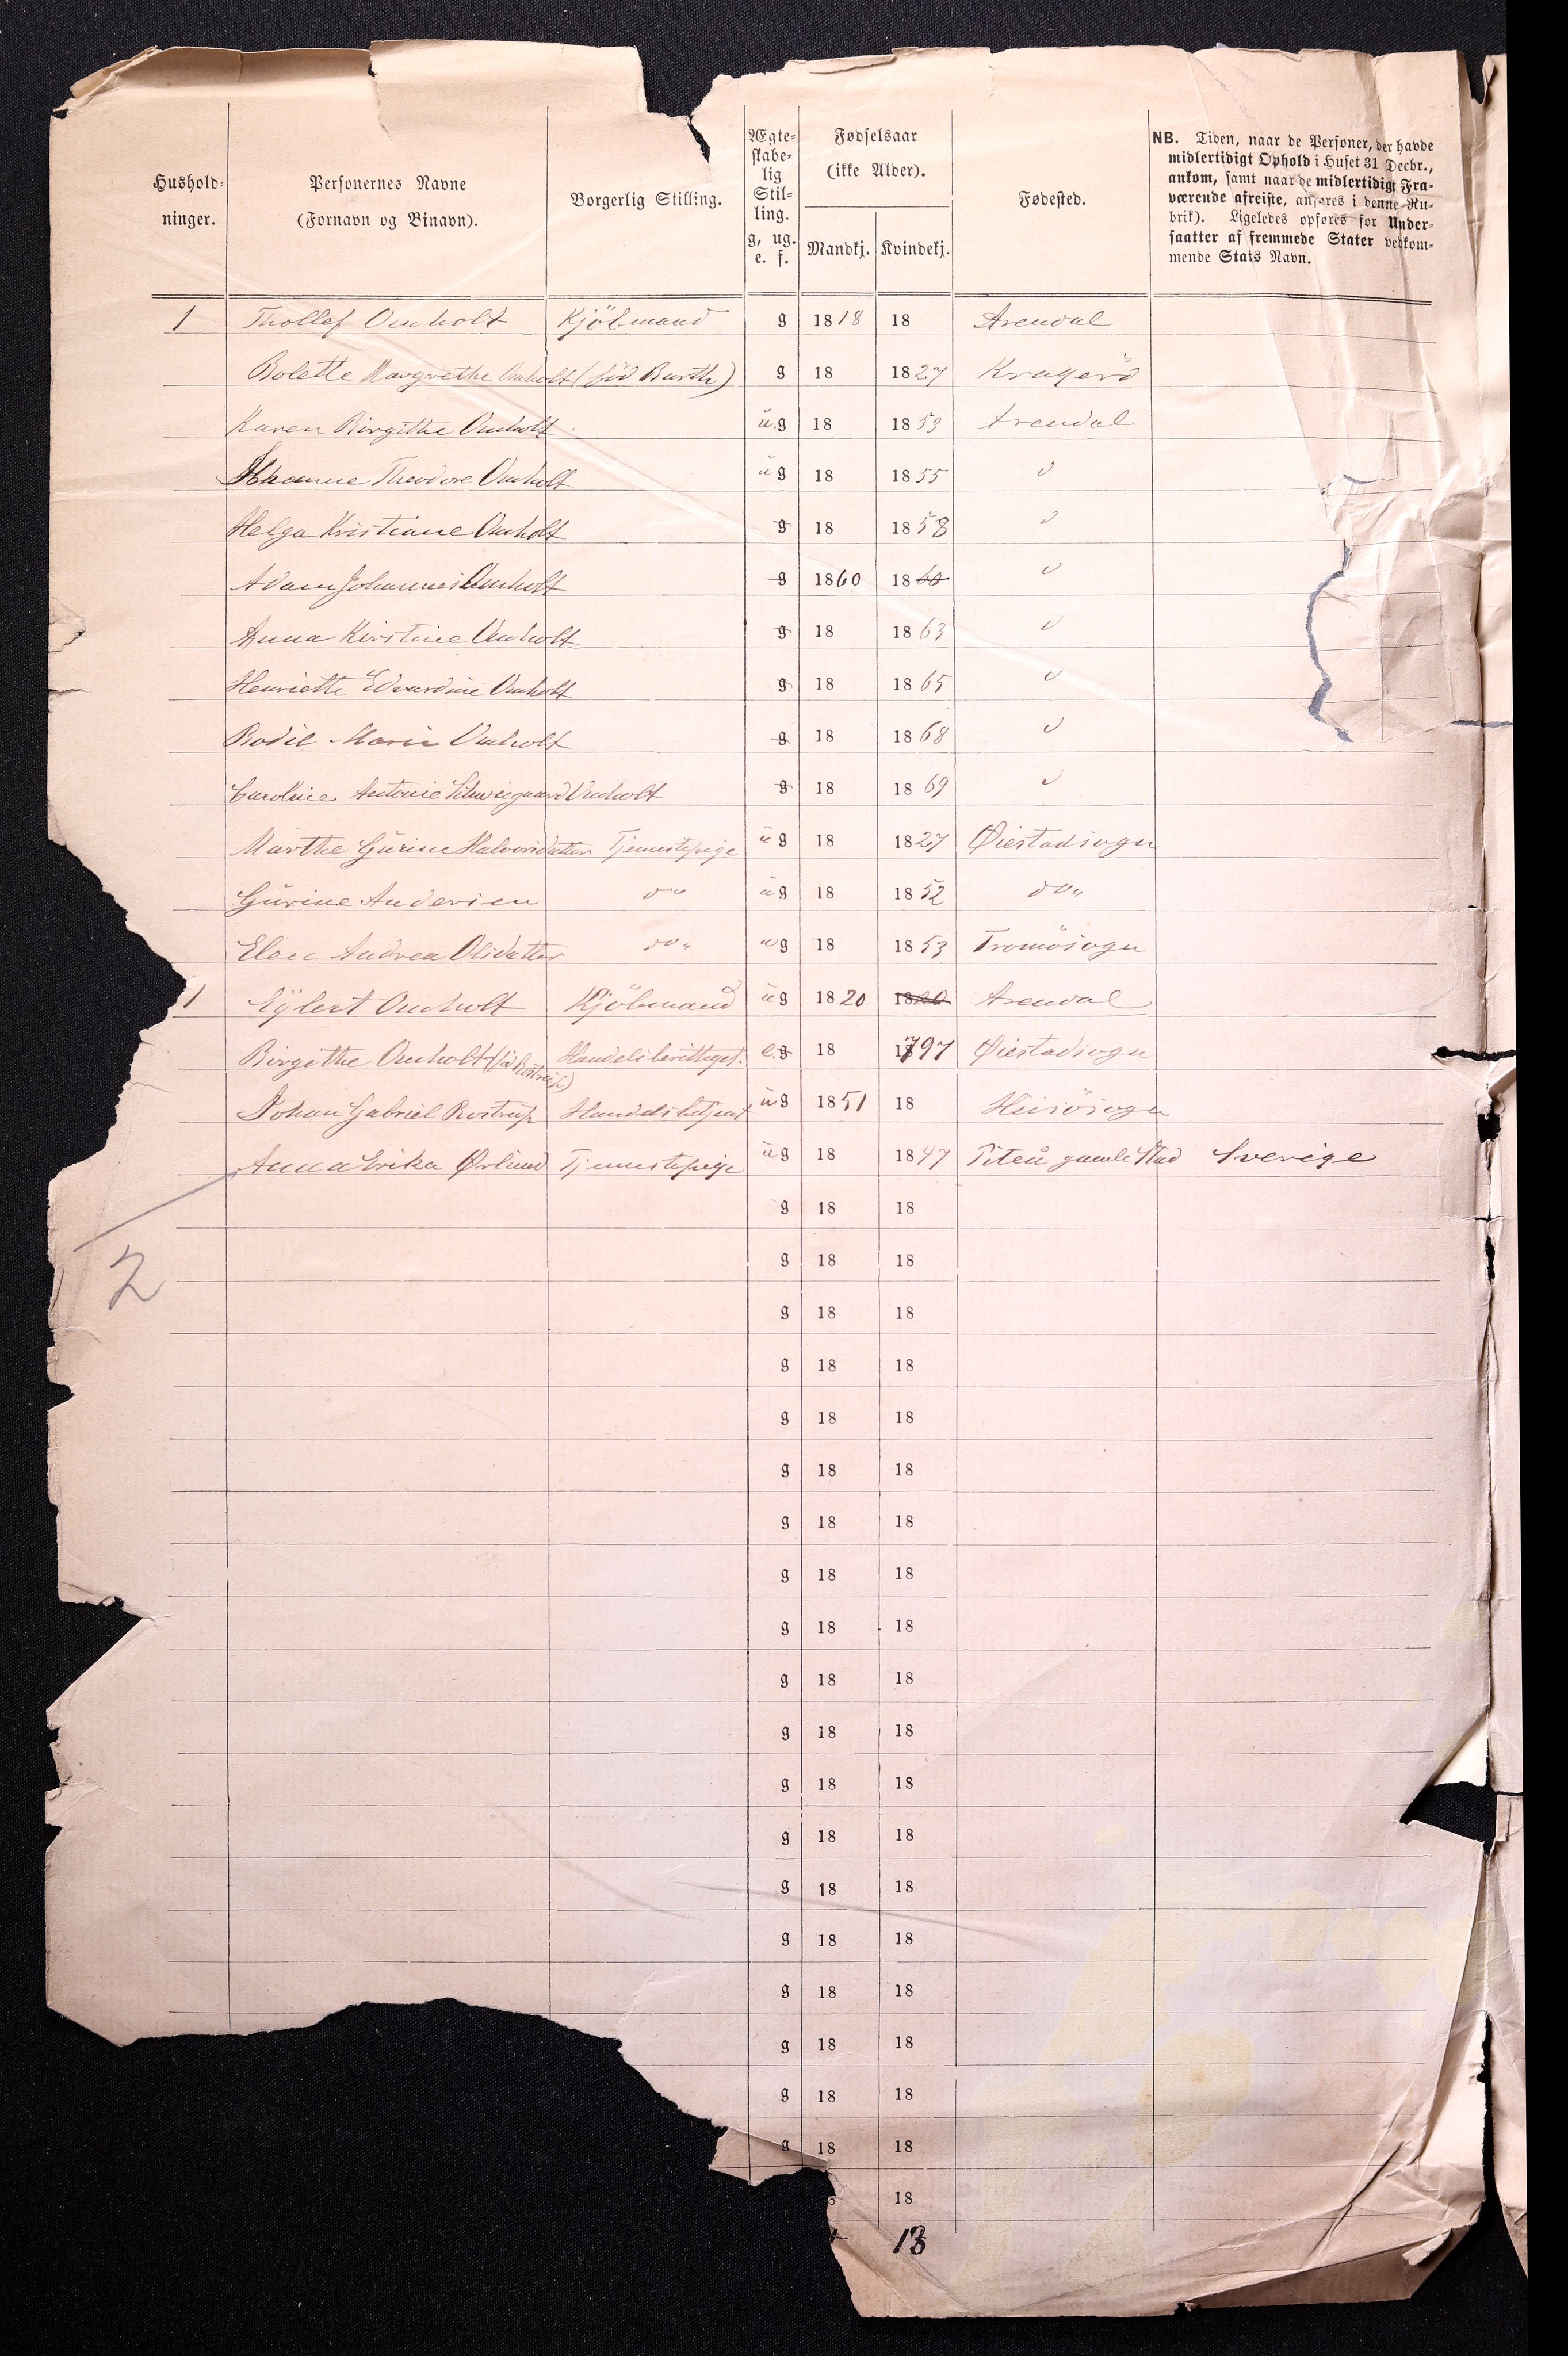 Hushold-
ninger.
Personernes Navne
(Fornavn og Binavn).
Borgerlig Stilling.
Ægte-
skabe-
lig
Stil-
ling.
g, ug.
e. f.
Fødselsaar
(ikke Alder).
Mandkj. Kvindekj.
Fødested.
NB. Tiden, naar de Personer, der havde
midlertidigt Ophold i Huset 31 Decbr.,
ankom, samt naar de midlertidigt Fra-
værende afreiste, anføres i denne Ru-
brik). Ligeledes opføres for Under-
saatter af fremmede Stater vedkom-
mende Stats Navn.
1 Thollef Omholt Kjöbmand g 1818 18 Arendal
Bolette Margrethe Omholt (föd Barth) g 18 1827 Kragerö
Karen Birgithe Omholt ug 18 1853 Arendal
Johanne Theodore Omholt ug 18 1855 "
Helga Kristiane Omholt g 18 1858 "
Adam Johannes Omholt g 1860 1860 "
Anna Kirstine Omholt g 18 1863 "
Henriette Edvardine Omholt g 18 1865 "
Bodil Marie Omholt g 18 1868 "
Caroline Antonie Schweigaard Omholt g 18 1869 "
Marthe Gurine Halvorsdatter Tjenestepige ug 18 1827 Øiestadsogn
Gurine Andersen do ug 18 1852 do
Elen Andrea Olsdatter do ug 18 1853 Tromösogn
1 Eylert Omholt Kjöbmand ug 1820 1820 Arendal
Birgithe Omholt (föd Rostrup) Handelsberettiget. e.g 18 1797 Øiestadsogn
Johan Gabriel Rostrup Handelsbetjent ug 1851 18 Hisösogn
Anna Erika Ørlund Tjenestepige ug 18 1847 Piteå gamle Stad Sverige
g 18 18
2
g 18 18
g 18 18
g 18 18
g 18 18
g 18 18
g 18 18
g 18 18
g 18 18
g 18 18
g 18 18
g 18 18
g 18 18
g 18 18
g 18 18
g 18 18
g 18 18
g 18 18
g 18 18
18
13